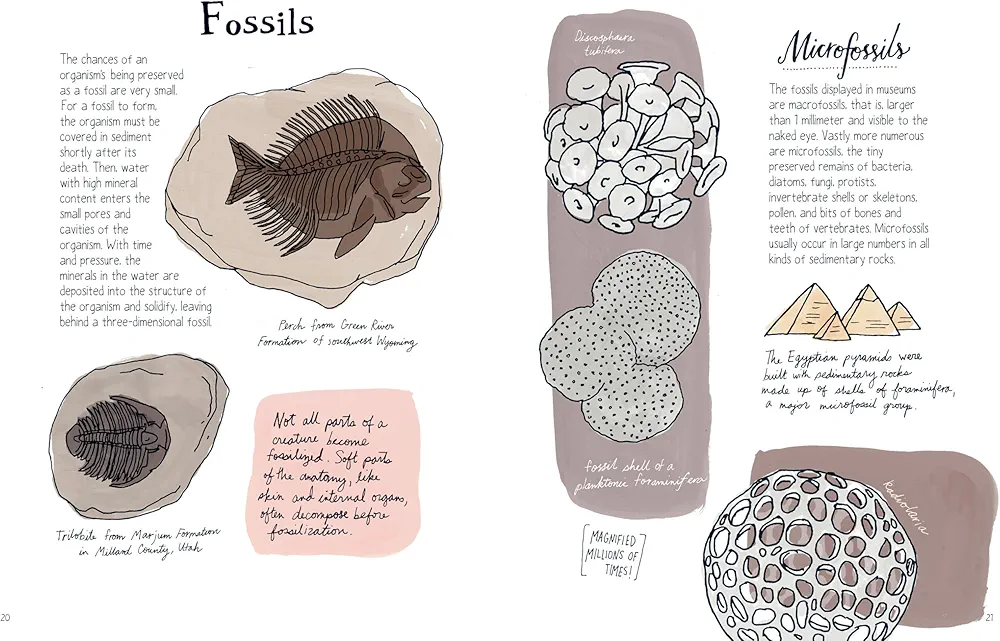 Fossils
The chances of an
organism's being preserved
as a fossil are very small.
For a fossil to form,
the organism must be
covered in sediment
shortly after its
death. Then, water
with high mineral
content enters the
small pores and
cavities of the
organism. With time
and pressure, the
minerals in the water are
deposited into the structure of
the organism and solidify, leaving
behind a three-dimensional fossil.
Perch from Green River
Formation of southwest Wyoming
Trilobite from Marjum Formation
in Millard County, Utah
Not all parts of a
creature become
fossilized. Soft parts
of the anatomy, like
skin and internal organs,
often decompose before
fossilization.
20
Discosphaera
tubifera
fossil shell of a
planktonic foraminifera
[MAGNIFIED
MILLIONS OF
TIMES!]
Microfossils
The fossils displayed in museums
are macrofossils, that is, larger
than 1 millimeter and visible to the
naked eye. Vastly more numerous
are microfossils, the tiny
preserved remains of bacteria,
diatoms, fungi, protists,
invertebrate shells or skeletons,
pollen, and bits of bones and
teeth of vertebrates. Microfossils
usually occur in large numbers in all
kinds of sedimentary rocks.
The Egyptian pyramids were
built with sedimentary rocks
made up of shells of foraminifera,
a major microfossil group.
Radiolaria
21